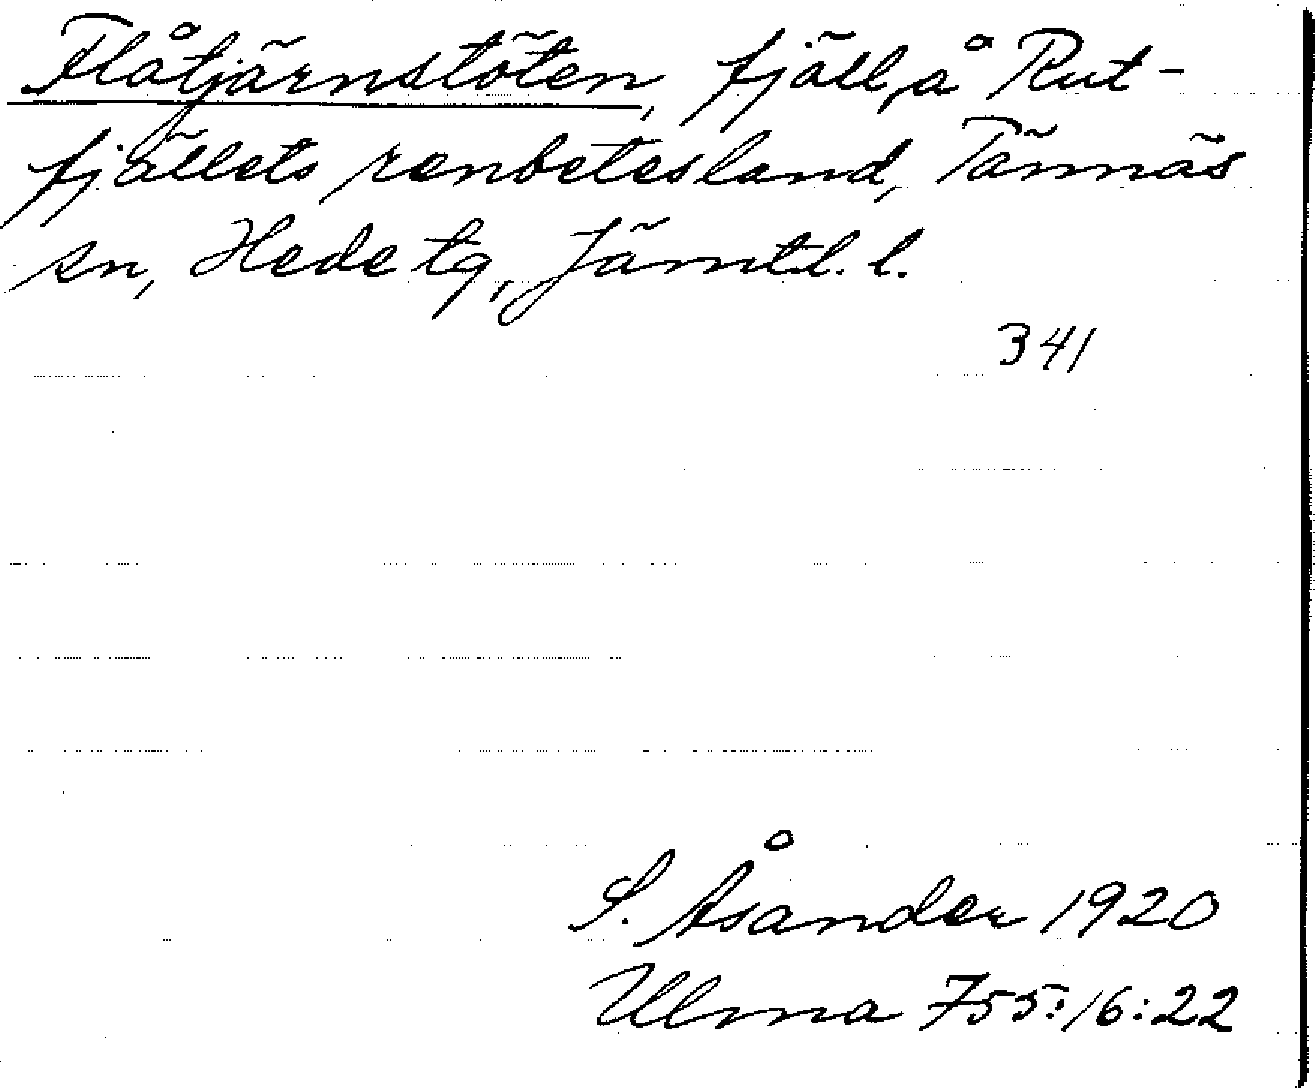 Flåtjärnstöten, fjäll, å Rut-
fjällets renbetesland, Tännäs
sn, Hede tg, Jämtl. l.
341
S. Åsander 1920
Ulma 755:16:22